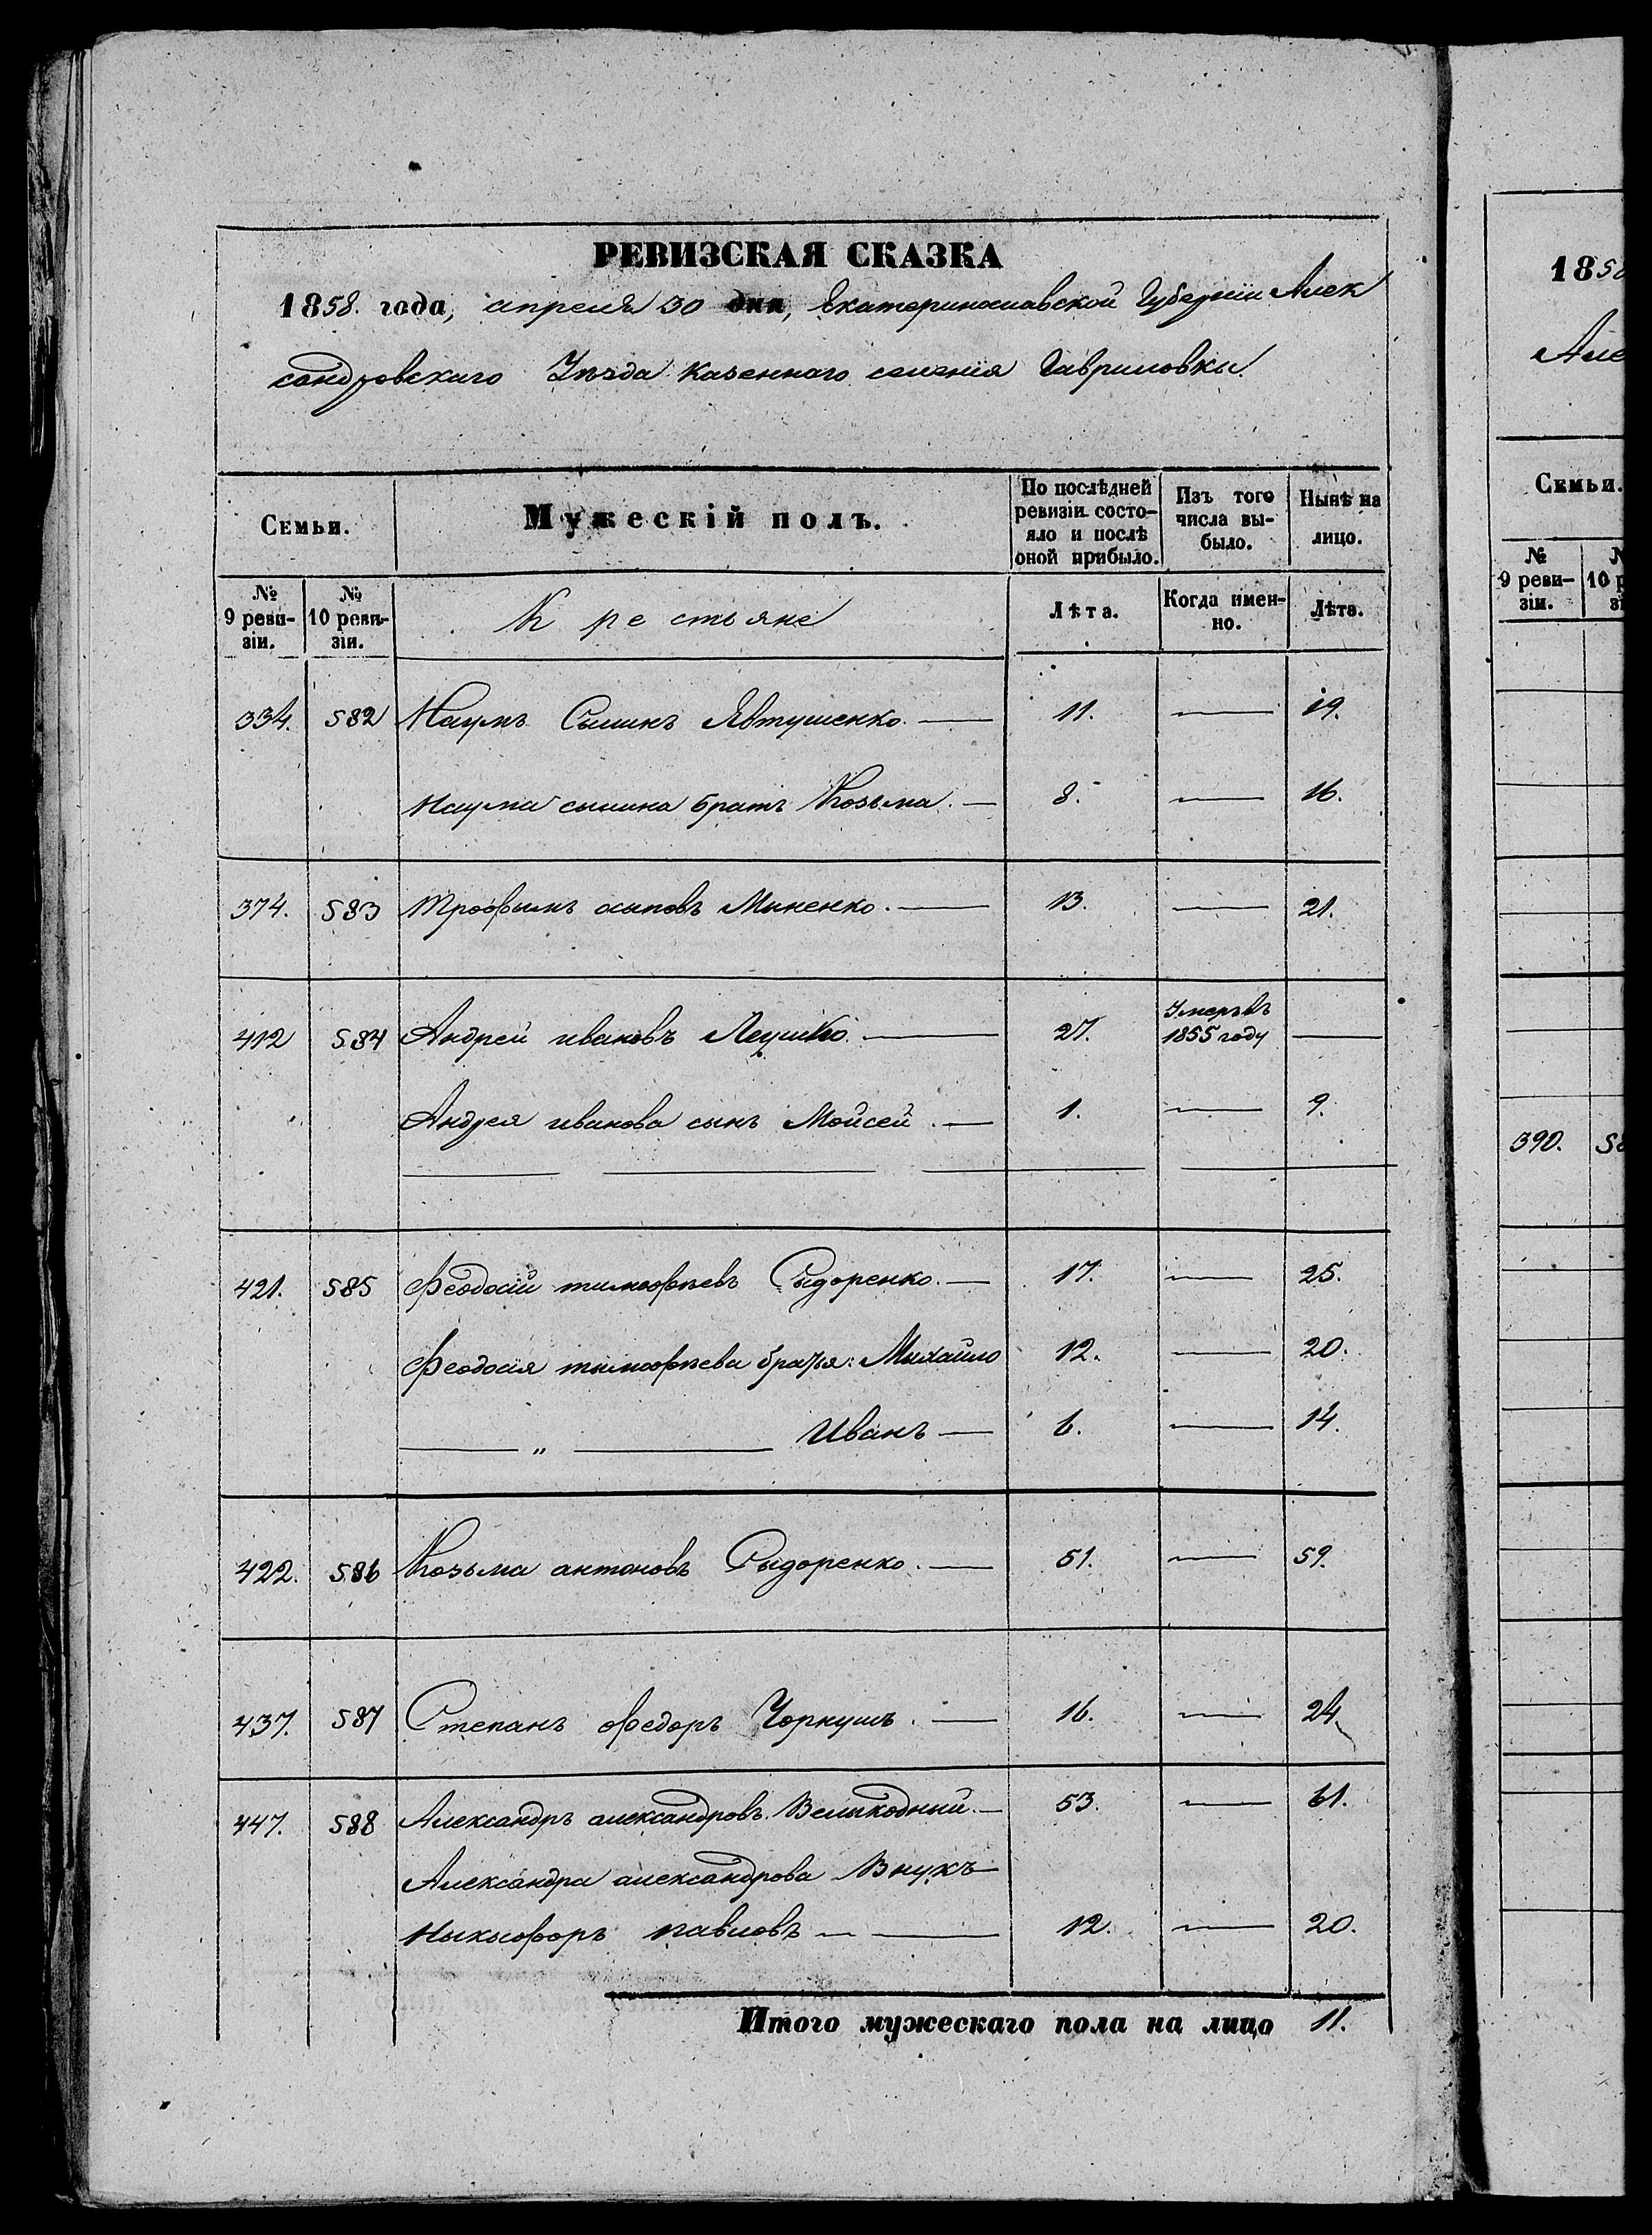 РЕВИЗСКАЯ СКАЗКА
1858. года, апреля 30 дня, Екатеринославской Губернии Алек
сандровскаго Уѣзда казеннаго селенія Гавриловки.
Семьи. Мужескій полъ. По послѣдней ревизіи состо- яло и послѣ оной прибыло. Изъ того числа вы- было. Нынѣ на лицо.
№ 9 реви- зіи. № 10 реви- зіи. Крестьяне Лѣта. Когда имен- но. Лѣта.
334. 582 Наумъ Сылинъ Явтушенко. — 11. — 19.
Наума сылина братъ Козьма. — 8. — 16.
374. 583 Трофымъ осыповъ Мыненко. — 13. — 21.
412 584 Андрей ивановъ — 27. Умеръ въ 1855 году —
Андрея иванова сынъ Мойсей. — 1. — 9.
421. 585 Феодосій тимофѣевъ Сыдоренко. — 17. — 25.
Феодосія тымофѣева братья: Мыхайло 12. — 20.
— „ — Иванъ — 6. — 14.
422. 586 Козьма антоновъ Сыдоренко. — 51. — 59.
437. 587 Степанъ федоръ — 16. — 24.
447. 588 Александръ александровъ Великодный. — 53. — 61.
Александра александрова Внукъ —
Ныкыфоръ павловъ — 12. — 20.
Итого мужескаго пола на лицо 11.
1858
Але
Семьи.
№ 9 реви- зіи.
390.